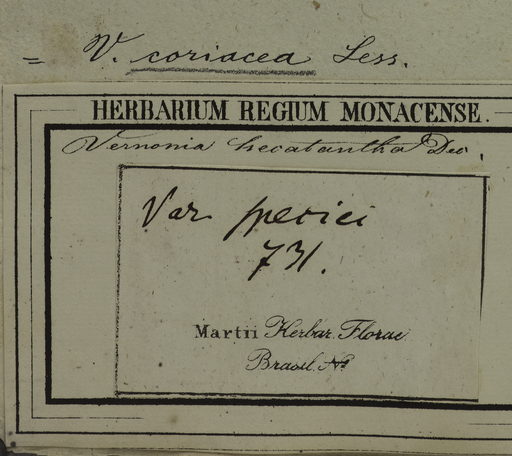 = V. coriacea Less.
HERBARIUM REGIUM MONACENSE.
Vernonia hecatantha Dec.
Var speciei
731.
Martii Herbar. Florae
Brasil. No